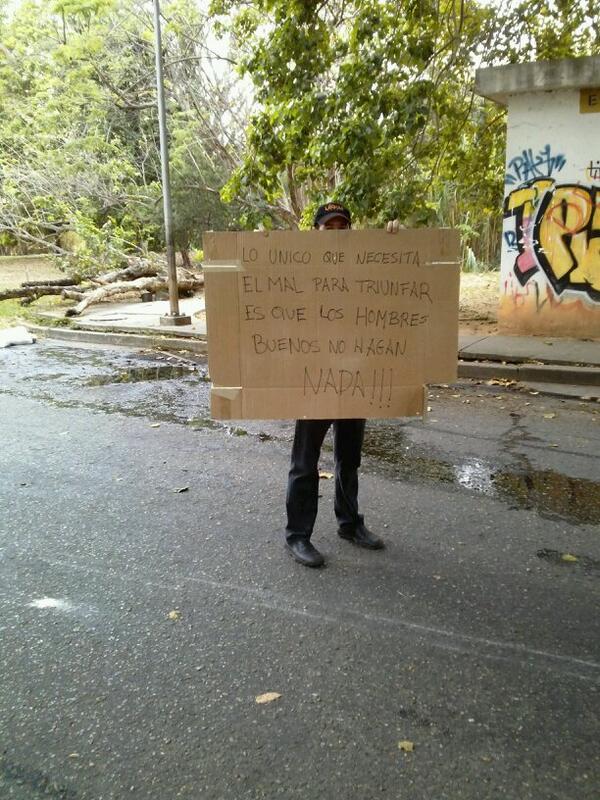 LO UNICO QUE NECESITA
EL MAL PARA TRIUNFAR
ES QUE LOS HOMBRES
BUENOS NO HAGAN
NADA!!!